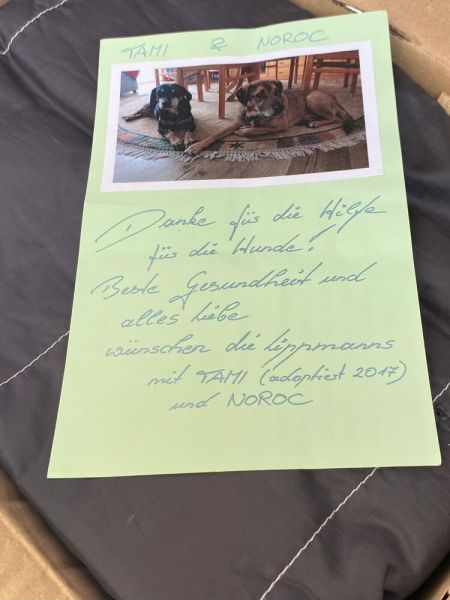 TAMI & NOROC
Danke für die Hilfe
für die Hunde!
Beste Gesundheit und
alles Liebe
wünschen die Lippmanns
mit TAMI (adoptiert 2017)
und NOROC